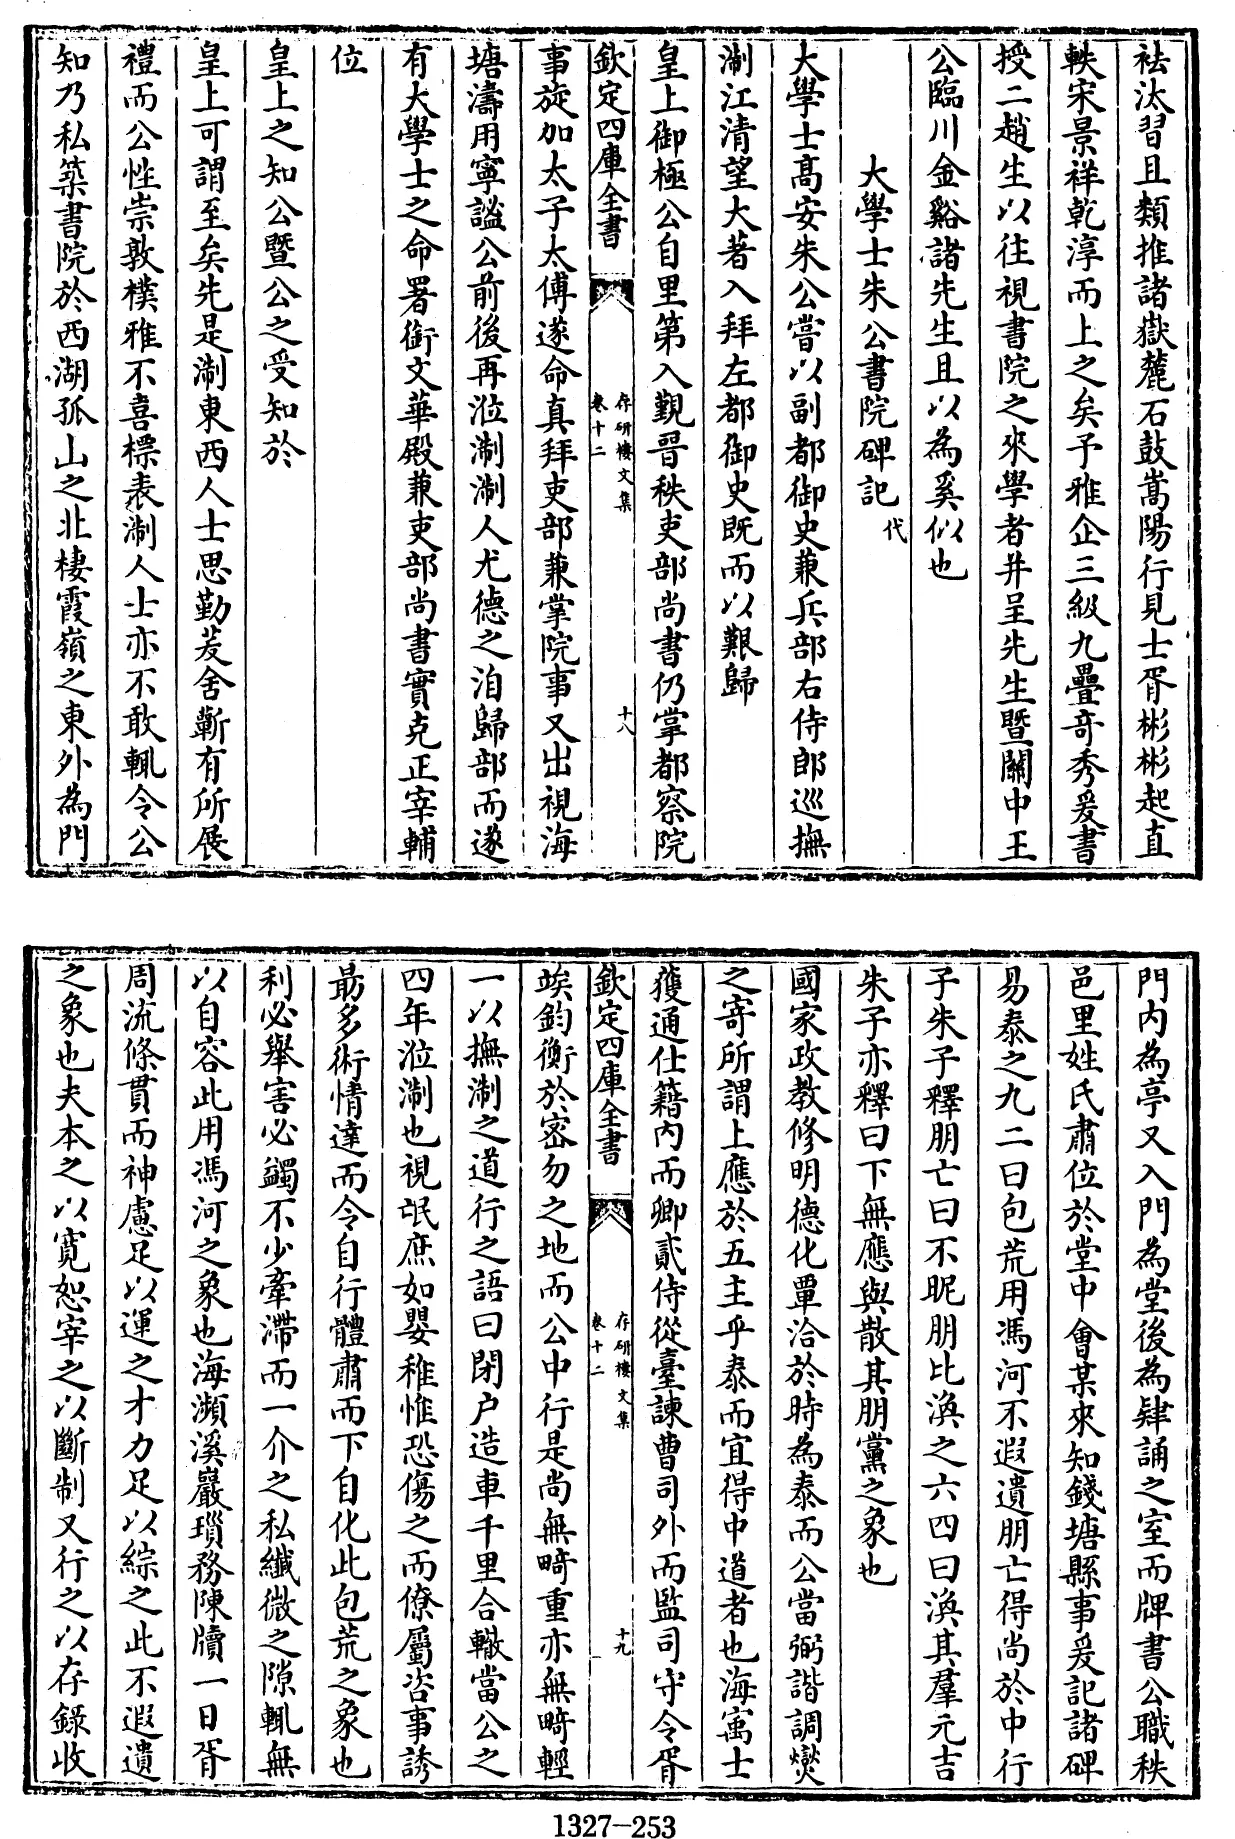 袪汰習且類推諸嶽麓石鼓嵩陽行見士胥彬彬起直
軼宋景祥乾淳而上之矣予雅企三級九疊奇秀爰書
授二趙生以往視書院之來學者并呈先生暨關中王
公臨川金谿諸先生且以為奚似也
大學士朱公書院碑記代
大學士高安朱公嘗以副都御史兼兵部右侍郎巡撫
淛江清望大著入拜左都御史既而以艱歸
皇上御極公自里第入覲晉秩吏部尚書仍掌都察院
欽定四庫全書
存研樓文集
卷十二
十八
事旋加太子太傅遂命真拜吏部兼掌院事又出視海
塘濤用寧謐公前後再涖淛淛人尤德之洎歸部而遂
有大學士之命署銜文華殿兼吏部尚書實克正宰輔
位
皇上之知公暨公之受知於
皇上可謂至矣先是淛東西人士思勤茇舍蘄有所展
禮而公性崇敦樸雅不喜標表淛人士亦不敢輒令公
知乃私築書院於西湖孤山之北棲霞嶺之東外為門
門内為亭又入門為堂後為肄誦之室而牌書公職秩
邑里姓氏肅位於堂中會某來知錢塘縣事爰記諸碑
易泰之九二曰包荒用馮河不遐遺朋亡得尚於中行
子朱子釋朋亡曰不昵朋比渙之六四曰渙其羣元吉
朱子亦釋曰下無應與散其朋黨之象也
國家政教修明德化覃洽於時為泰而公當弼諧調爕
之寄所謂上應於五主乎泰而宜得中道者也海寓士
獲通仕籍内而卿貳侍從臺諫曹司外而監司守令胥
欽定四庫全書
存研樓文集
卷十二
十九
竢鈞衡於密勿之地而公中行是尚無畸重亦無畸輕
一以撫淛之道行之語曰閉户造車千里合轍當公之
四年涖淛也視氓庶如嬰稚惟恐傷之而僚屬咨事誘
最多術情達而令自行體肅而下自化此包荒之象也
利必舉害必蠲不少牽滯而一介之私纖微之隙輒無
以自容此用馮河之象也海瀕溪巖瑣務陳牘一日胥
周流條貫而神慮足以運之才力足以綜之此不遐遺
之象也夫本之以寬恕宰之以斷制又行之以存錄收
1327-253